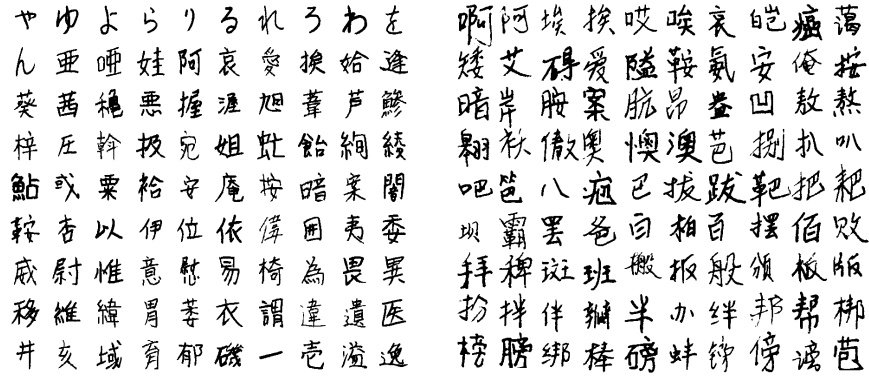 やゆよらりるれろわを
ん亜唖娃阿哀愛挨姶逢
葵茜穐悪握渥旭葦芦鯵
梓圧斡扱宛姐虻飴絢綾
鮎或粟袷安庵按暗案闇
鞍杏以伊位依偉囲夷委
威尉惟意慰易椅為畏異
移維緯胃萎衣謂違遺医
井亥域育郁磯一壱溢逸
啊阿埃挨哎唉哀皑癌蔼
矮艾碍爱隘鞍氨安俺按
暗岸胺案肮昂盎凹敖熬
翱袄傲奥懊澳芭捌扒叭
吧笆八疤巴拔跋靶把耙
坝霸罢爸白柏百摆佰败
拜稗斑班搬扳般颁板版
扮拌伴瓣半办绊邦帮梆
榜膀绑棒磅蚌镑傍谤苞